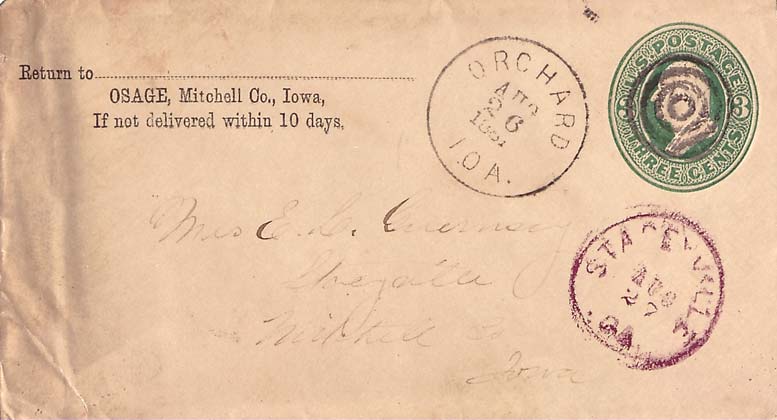 Return to
OSAGE, Mitchell Co., Iowa,
If not delivered within 10 days.
ORCHARD
AUG
26
1881
IOA.
U.S. POSTAGE
3 3
THREE CENTS
STACEYVILLE
AUG
27
IOA.
Mrs E. C. Guernsey
Mitchell Co
Iowa